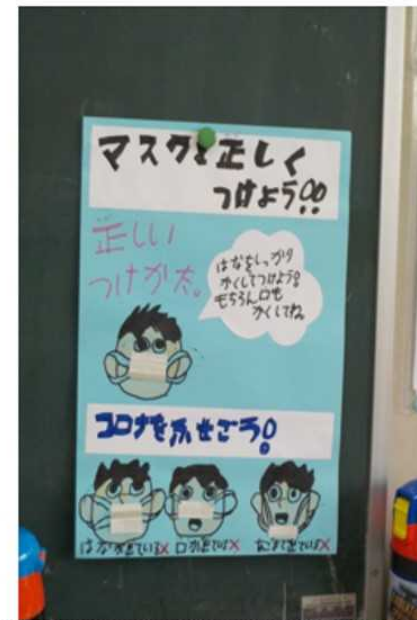 マスクを正しく
つけよう!!
正しい
つけかた。
はなをしっかり
かくしてつけよう!
もちろん口も
かくしてね。
コロナをふせごう!
はなが出ている× 口が出ている×